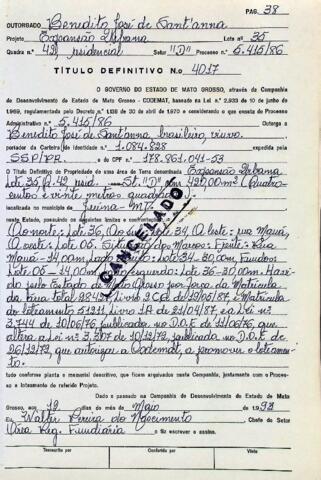 PAG. 38
OUTORGADO Benedito José de Sant'anna
Projeto Expansão Urbana Lote no 35
Quadra n.o 42, residencial Setor "D" Processo n.o 5.415/86
TÍTULO DEFINITIVO N.o 4017
O GOVERNO DO ESTADO DE MATO GROSSO, através da Companhia
de Desenvolvimento do Estado de Mato Grosso - CODEMAT, baseado na Lei n.o 2.933 de 10 de junho de
1969, regulamentada pelo Decreto n.o 1138 de 30 de abril de 1970 e considerando o que consta do Processo
Administrativo n.o 5.415/86 Outorga a
Benedito José de Sant'anna, brasileiro, viuvo.
portador da Carteira de Identidade n.o 1.084.828 expedida pelo
SSP/PR. e do CPF n.o 178.961.041-53
O Título Definitivo de Propriedade de uma área de Terra denominada Expansão Urbana
Lote 35, Q. 42 resid. St. "D" com 420,00m² (Quatro-
centos e vinte metros quadrados)
localizada no município de Juina-MT.
neste Estado, possuindo os seguintes limites e confrontações:
Ao norte: Lote 36, Ao sul: Lote 34, A leste: rua Mauá,
A oeste: Lote 06. Situação dos Marcos: Frente: Rua
Mauá - 14,00m Lado direito: Lote 34 - 30,00m, Fundos:
Lote 06 - 14,00m Lado esquerdo: Lote 36 - 30,00m. Havi-
do pelo Estado de Mato Grosso por força da Matricula
da área total Livro 2 e Matricula
do loteamento 51211, Livro 1A de 21/04/87, e a Lei nº
3.744 de 10/06/76, publicada no D.O.E de 11/06/76, que
altera a Lei nº 3.307 de 18/12/72, publicada no D.O.E de
26/12/72, que autoriza a Codemat, a promover o loteamen-
to.
CANCELADO
tudo conforme planta e memorial descritivo, que ficam arquivados nesta Companhia, juntamente com o Proces-
so e loteamento do referido Projeto.
Dado e passado na Companhia de Desenvolvimento do Estado de Mato
Grosso, aos 19 dias do mês de Maio de 1.993
Eu Walter Pereira do Nascimento Chefe do Setor
Reg. Fundiária o fiz escrever e assino.
Transcrito por Conferido por Visto